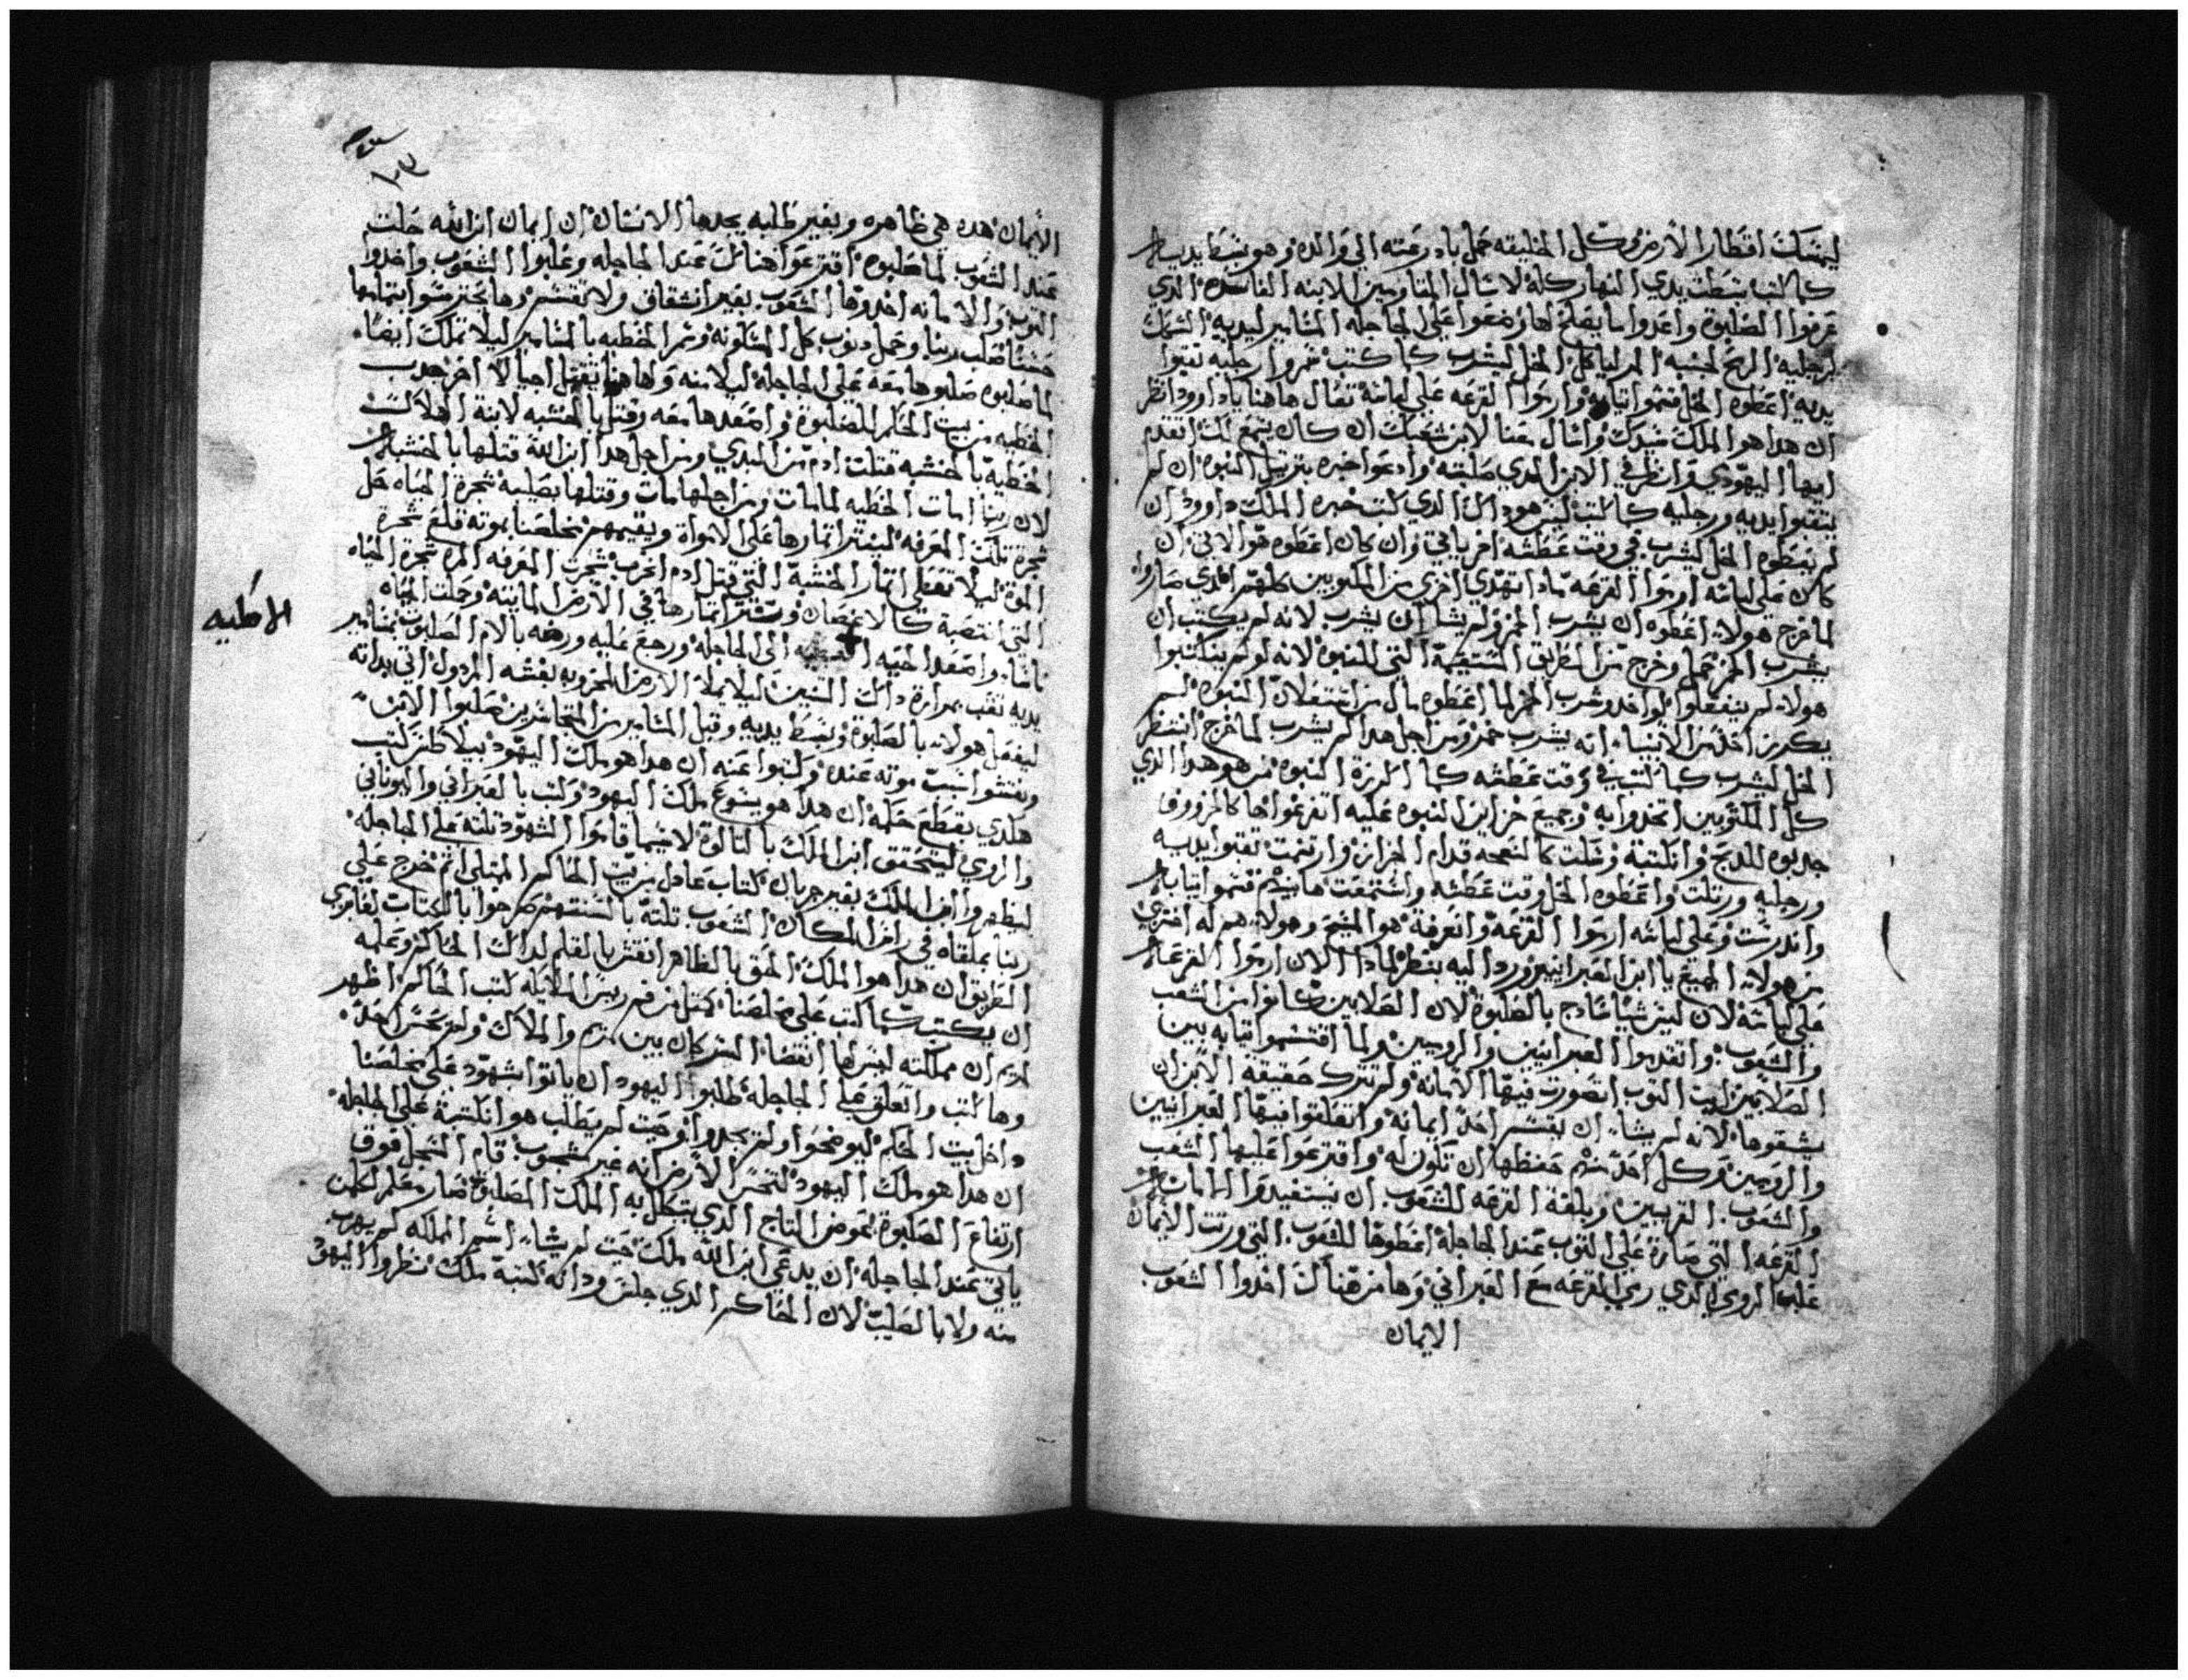 ليمسك اقطار الارض وكل الخليقه حمل بادرعته الي والده وهو بسط يديه
كما كتب بسطت يدي النهار كله لاسال المتاومين للابنه الفاسده الدي
عرفوا الصلبوة واعدوا ما يصلح لها وضعوا علي الجاجله المسامير ليديه السمك
لرجليه الرمح لجنبه المر لياكل الخل ليشرب كما كتب سمروا رجليه تقبوا
يديه اعطوه الخل قتموا تيابه وارموا القرعه علي لباسه تعال هاهنا ياداوود انظر
ان هدا هو الملك سيدك واسال معنا لابن شعبك ان كان يسمع الك اتقدم
ايها اليهودي وانظر في الابن الدي صلبته وادعوا خبره بترتيل النبوه ان لم
يتقبوا يديه ورجليه كما كتب ليس هو داك الدي كتب خبره الملك داوود ان
لم يعطوه الخل ليشرب في وقت عطشه اخر ياتي وان كان اعطوه هو الاتي ان
كان علي لباسه ارموا القرعه مادا تهدي اخري من المكتوبين كلهم الدي صاروا
لما خرج هولاء اعطوه ان يشرب الخمر ولم يشا ان يشرب لانه لم يكتب ان
يشرب الخمر خرج من الطريق المستقيمة التي للنبوه لانه لو لم يتكتبوا
هولاء لم ينفعلوا لو اخد وشرب الخمر لما اعطوه مال من استعلان النبوه لم
يكرز احد من الانبياء انه يشرب خمر ومن اجل هدا لم يشرب لما خرج انتظر
الخل ليشرب كما كتب في وقت عطشه كما الكرزة النبوه من هو هدا الدي
كل المكتوبين اتخدوا به وجميع خزاين النبوه عليه اتفرغوا كالخروف
جدبوه للدبح وانكتبة وسكت كالنعجه قدام الجزاز وارتسمت تقبوا يديه
ورجليه ورتلت واعطوه الخل وقت عطشه واستمعت هابيدم قسموا تيابه
واندرست وعلي لباسه ارموا القرعه وانعرفة هو المسيح وهولاء هم له اختري
من هولاء الجميع يا ابن العبرانيين ورد اليه بنظر لمادا الان ارموا القرعه
علي لباسه لان ليس شيا سادج بالصلبوة لان الصلابين كانوا من الشعب
والشعوب واتقدموا العبرانيين والروميين ولما اقتسموا تيابه بين
الصلابين ليت التوب اتصورت فيها الامانة ولم تترك حقيقه الابن ان
يشقوها لانه لم يشاء ان يقسم احد ايمانه واتعلقوا فيها العبرانيين
والروميين وكل احد منهم حفظها ان تكون له واقترعوا عليها الشعب
والشعوب القريبين وبلغة القرعه للشعوب ان يستفيدوا
القرعه التي صارة علي التوب عند الجاجلة اعطوها للشعوب التي ورتت الايمان
غلب الرومي الدي رمي القرعه مع العبراني وها من هناك اخدوا الشعوب
الايمان
١٠٣
الايمان هده هي ظاهره وبغير طلبه يجدها الانسان ان ايمان ابن الله حلت
عند الشعوب لما صلبوه اقترعوا هنالك عند الجاجله وغلبوا الشعوب واخدوا
التوب والامانه اخدوها الشعوب بغير انشقاق ولا تقسم وها يحترسوا بتمامها
حسنا صلب ربنا وحمل دنوب كل المسكونه وسمر الخطيه بالمسامير ليلا تملك ايضا
لما صلبوه صلبوها معه علي الجاجلة ليلا منه ولها هنا لا اخر جدب
الخطيه من بيت الحكم للصلبوة واصعدها معه وقتل بالخشبه لابنة الهلاك
الخطية بالخشبه قتلت ادم من البدي ومن اجل هدا ابن الله قتلها بالخشبه
لان ربنا امات الخطيه لما مات ومن اجلها مات وقتلها بصليبه شجرة الحياه حل
شجرة تلك المعرفه لينتر اتمارها علي الامواة ويقيمهم مخلصنا بموته قلع شجرة
الموة ليلا تعطي اتمار الخشبة التي قتل ادم اخرب شجرت المعرفه المره شجرة الحياه
التي انتصبة كالاغصان ونشر اتمارها في الارض المايته وحملت الحياه
ناشا واصعد الحيه الي الجاجله ورجع عليه ورضه بالام الصلبوت بمسامير
يديه تقب بمرارة داك السنين ليلا يملا الارض المخزويه بفسه المردول اتي بداته
ليفعل هولاء بالصلبوة وبسط يديه وقبل المسامير من المتجاسرين صلبوا الابن
ونقشوا سبب موته عنده وكتبوا عنه ان هدا هو ملك اليهود بيلاطس كتب
هكدي بقطع حكمه ان هدا هو يسوع ملك اليهود وكتب بالعبراني واليوناني
والرومي ليتحقق ابن الملك بالتالوة لاسيما قاموا الشهود تلته علي الجاجله
ليظهروا ابن الملك بغير جربان كتاب عادل من بيت الحاكم امتلي اتم خرج علي
ربنا بملقاه في راس المكان الشعوب تلته بالسنتهم صرخوا بالكتاب لعابري
الطريق ان هدا هو الملك الحق بالظاهر انقش بالقلم لداك الحاكم وعلمه
ان يكتب كما كتب علي مخلصنا كمتل من فم ريس الملايكه كتب الحاكم اظهر
لمريم ان مملكته ليس لها انقضا السر كان بين مريم والملاك ولم يحس احد
وها كتب واتعلق علي الجاجله طلبوا اليهود ان ياتوا بشهود علي مخلصنا
داخل بيت الحكم ليوضحوا ولم يجدوا وحيت لم يطلب هو انكتبة علي الجاجله
ان هدا هو ملك اليهود لتحس الارض انه غير مشجوب قام السجل فوق
ارتفاع الصلبوة عوض التاج الدي يتكلل به الملك المصلوب صار معلم لكلمن
ياتي عند الجاجله ان يدعي ابن الله ملك حيت لم يشاء اسم المملكه لم يهرب
منه ولا بالصليب لان الحاكم الدي جلس ودانه كتبة ملك نظروا اليهود
الخطيه